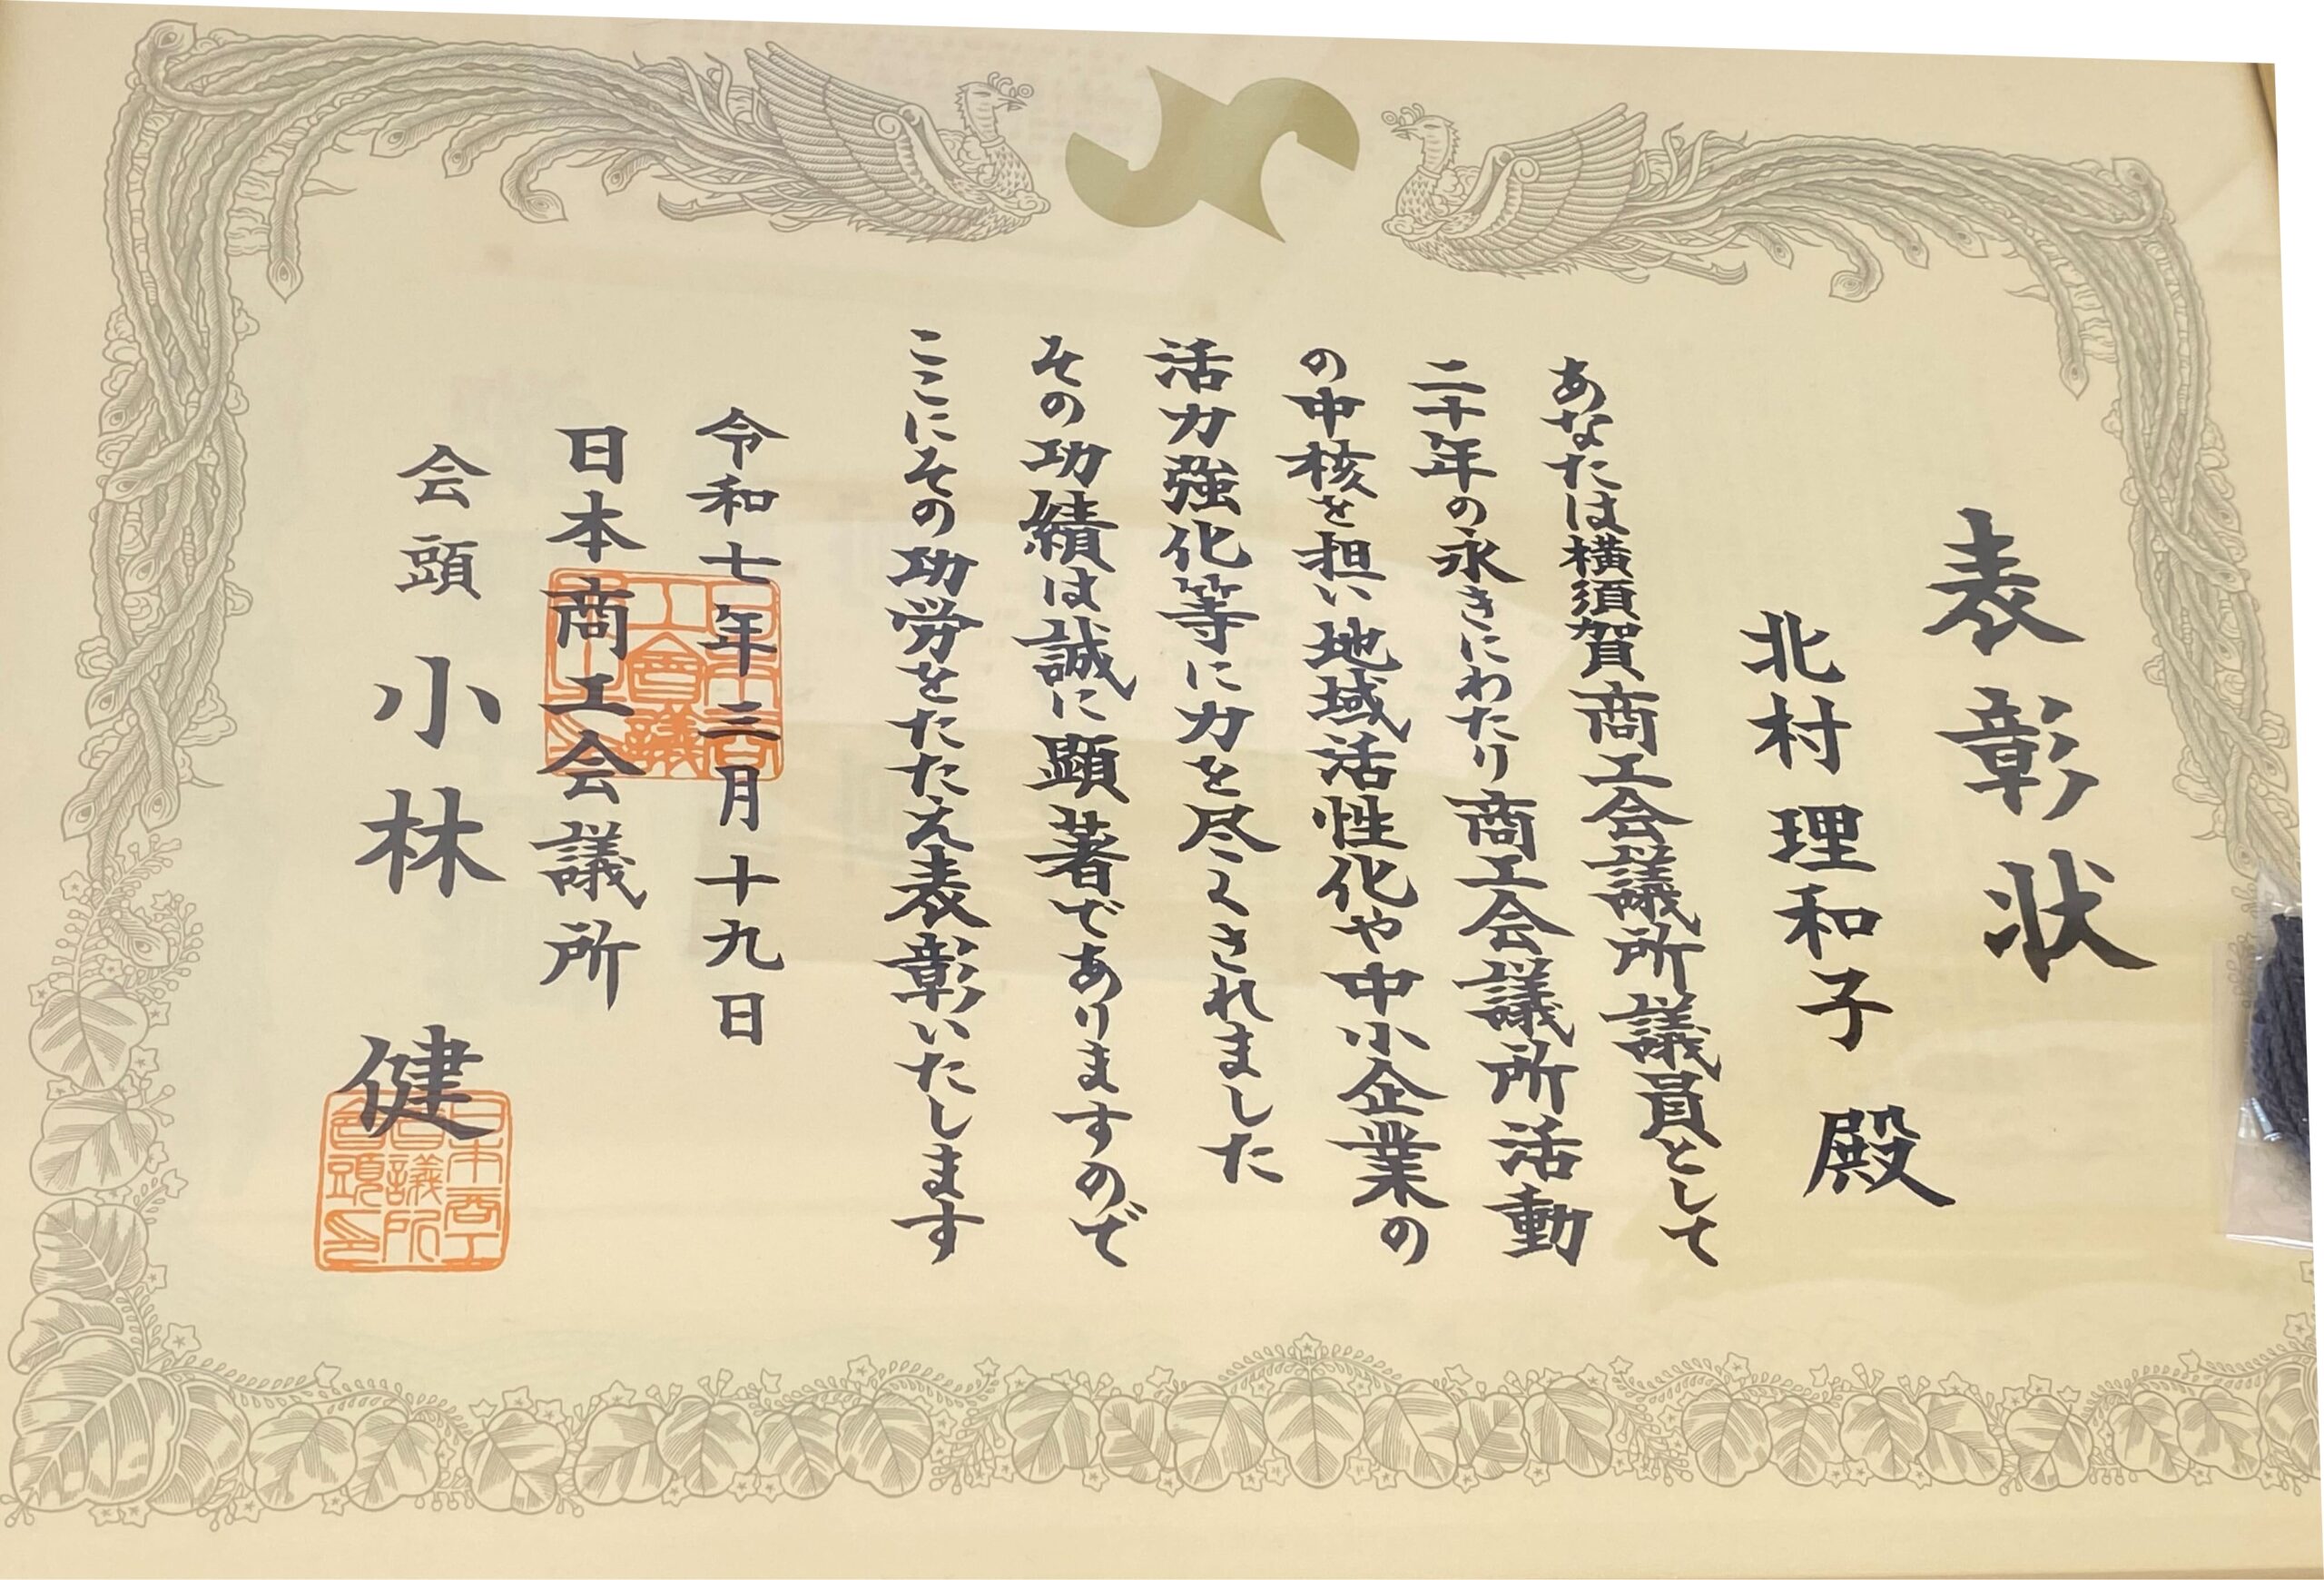 表彰状
北村理和子 殿
あなたは横須賀商工会議所議員として
二十年の永きにわたり商工会議所活動
の中核を担い地域活性化や中小企業の
活力強化等に力を尽くされました
その功績は誠に顕著でありますので
ここにその功労をたたえ表彰いたします
令和七年三月十九日
日本商工会議所
会頭 小林 健
日本商工会議所会頭印